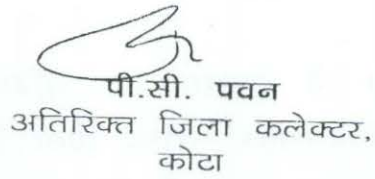 पी.सी. पवन
अतिरिक्त जिला कलेक्टर,
कोटा